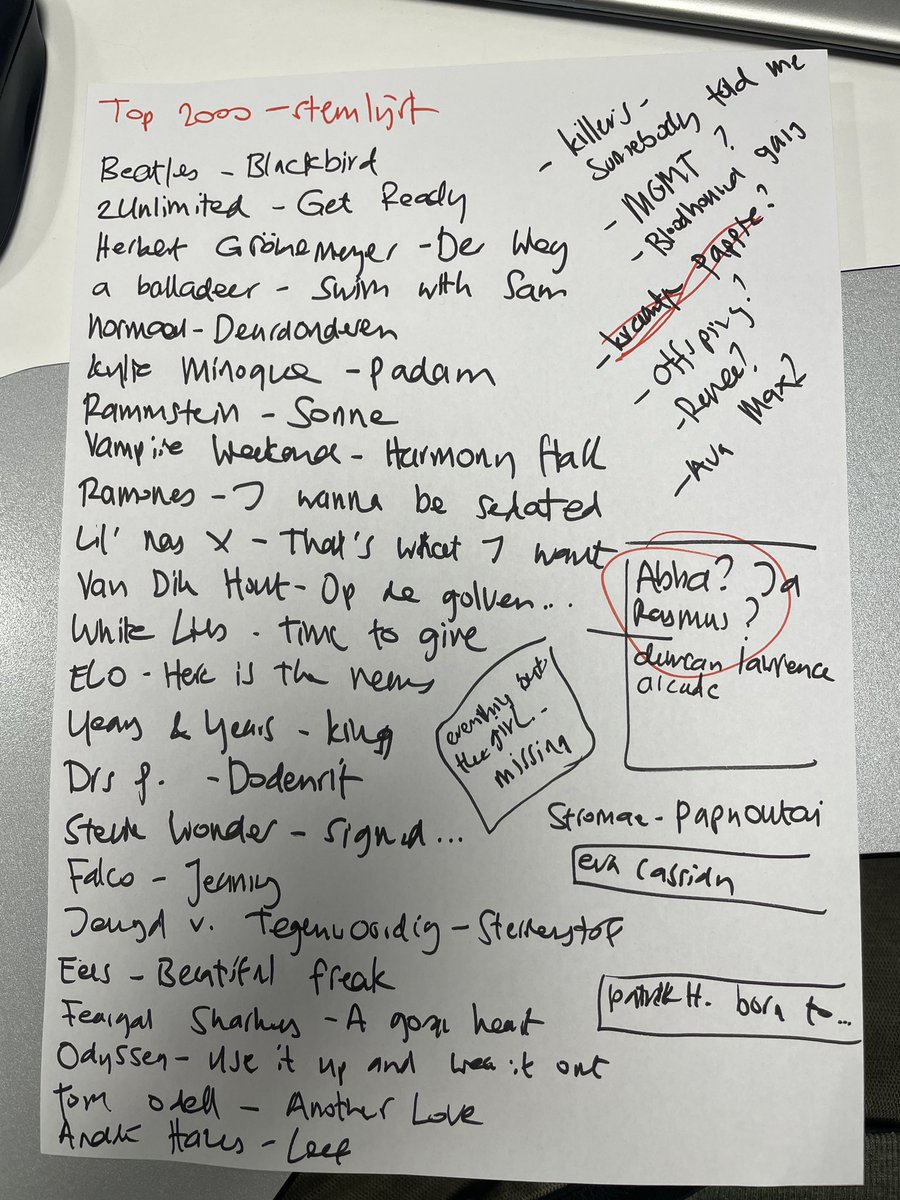 Top 2000 - stemlijst
Beatles - Blackbird
2Unlimited - Get Ready
Herbert Grönemeyer - Der Weg
a balladeer - Swim with Sam
Normaal - Deurdonderen
Kylie Minogue - Padam
Rammstein - Sonne
Vampire Weekend - Harmony Hall
Ramones - I wanna be sedated
Lil' Nas X - That's what I want
Van Dik Hout - Op de golven...
White Lies - Time to give
ELO - Here is the news
Years & Years - King
Drs P. - Dodenrit
Stevie Wonder - Signed...
Falco - Jeanny
Jeugd v. Tegenwoordig - Sterrenstof
Eels - Beatiful freak
Feargal Sharkey - A good heart
Odyssey - Use it up and wear it out
Tom Odell - Another Love
André Hazes - Leef
- Killers -
Somebody told me
- MGMT ?
- Bloodhound gang
- Pappie?
- Offsping?
- Renee?
- Ava Max?
Abba? Ja
Rasmus?
duncan laurence
arcade
everything but
the girl -
missing
Stromae - Papaoutai
eva Cassidy
Patrick H. born to...